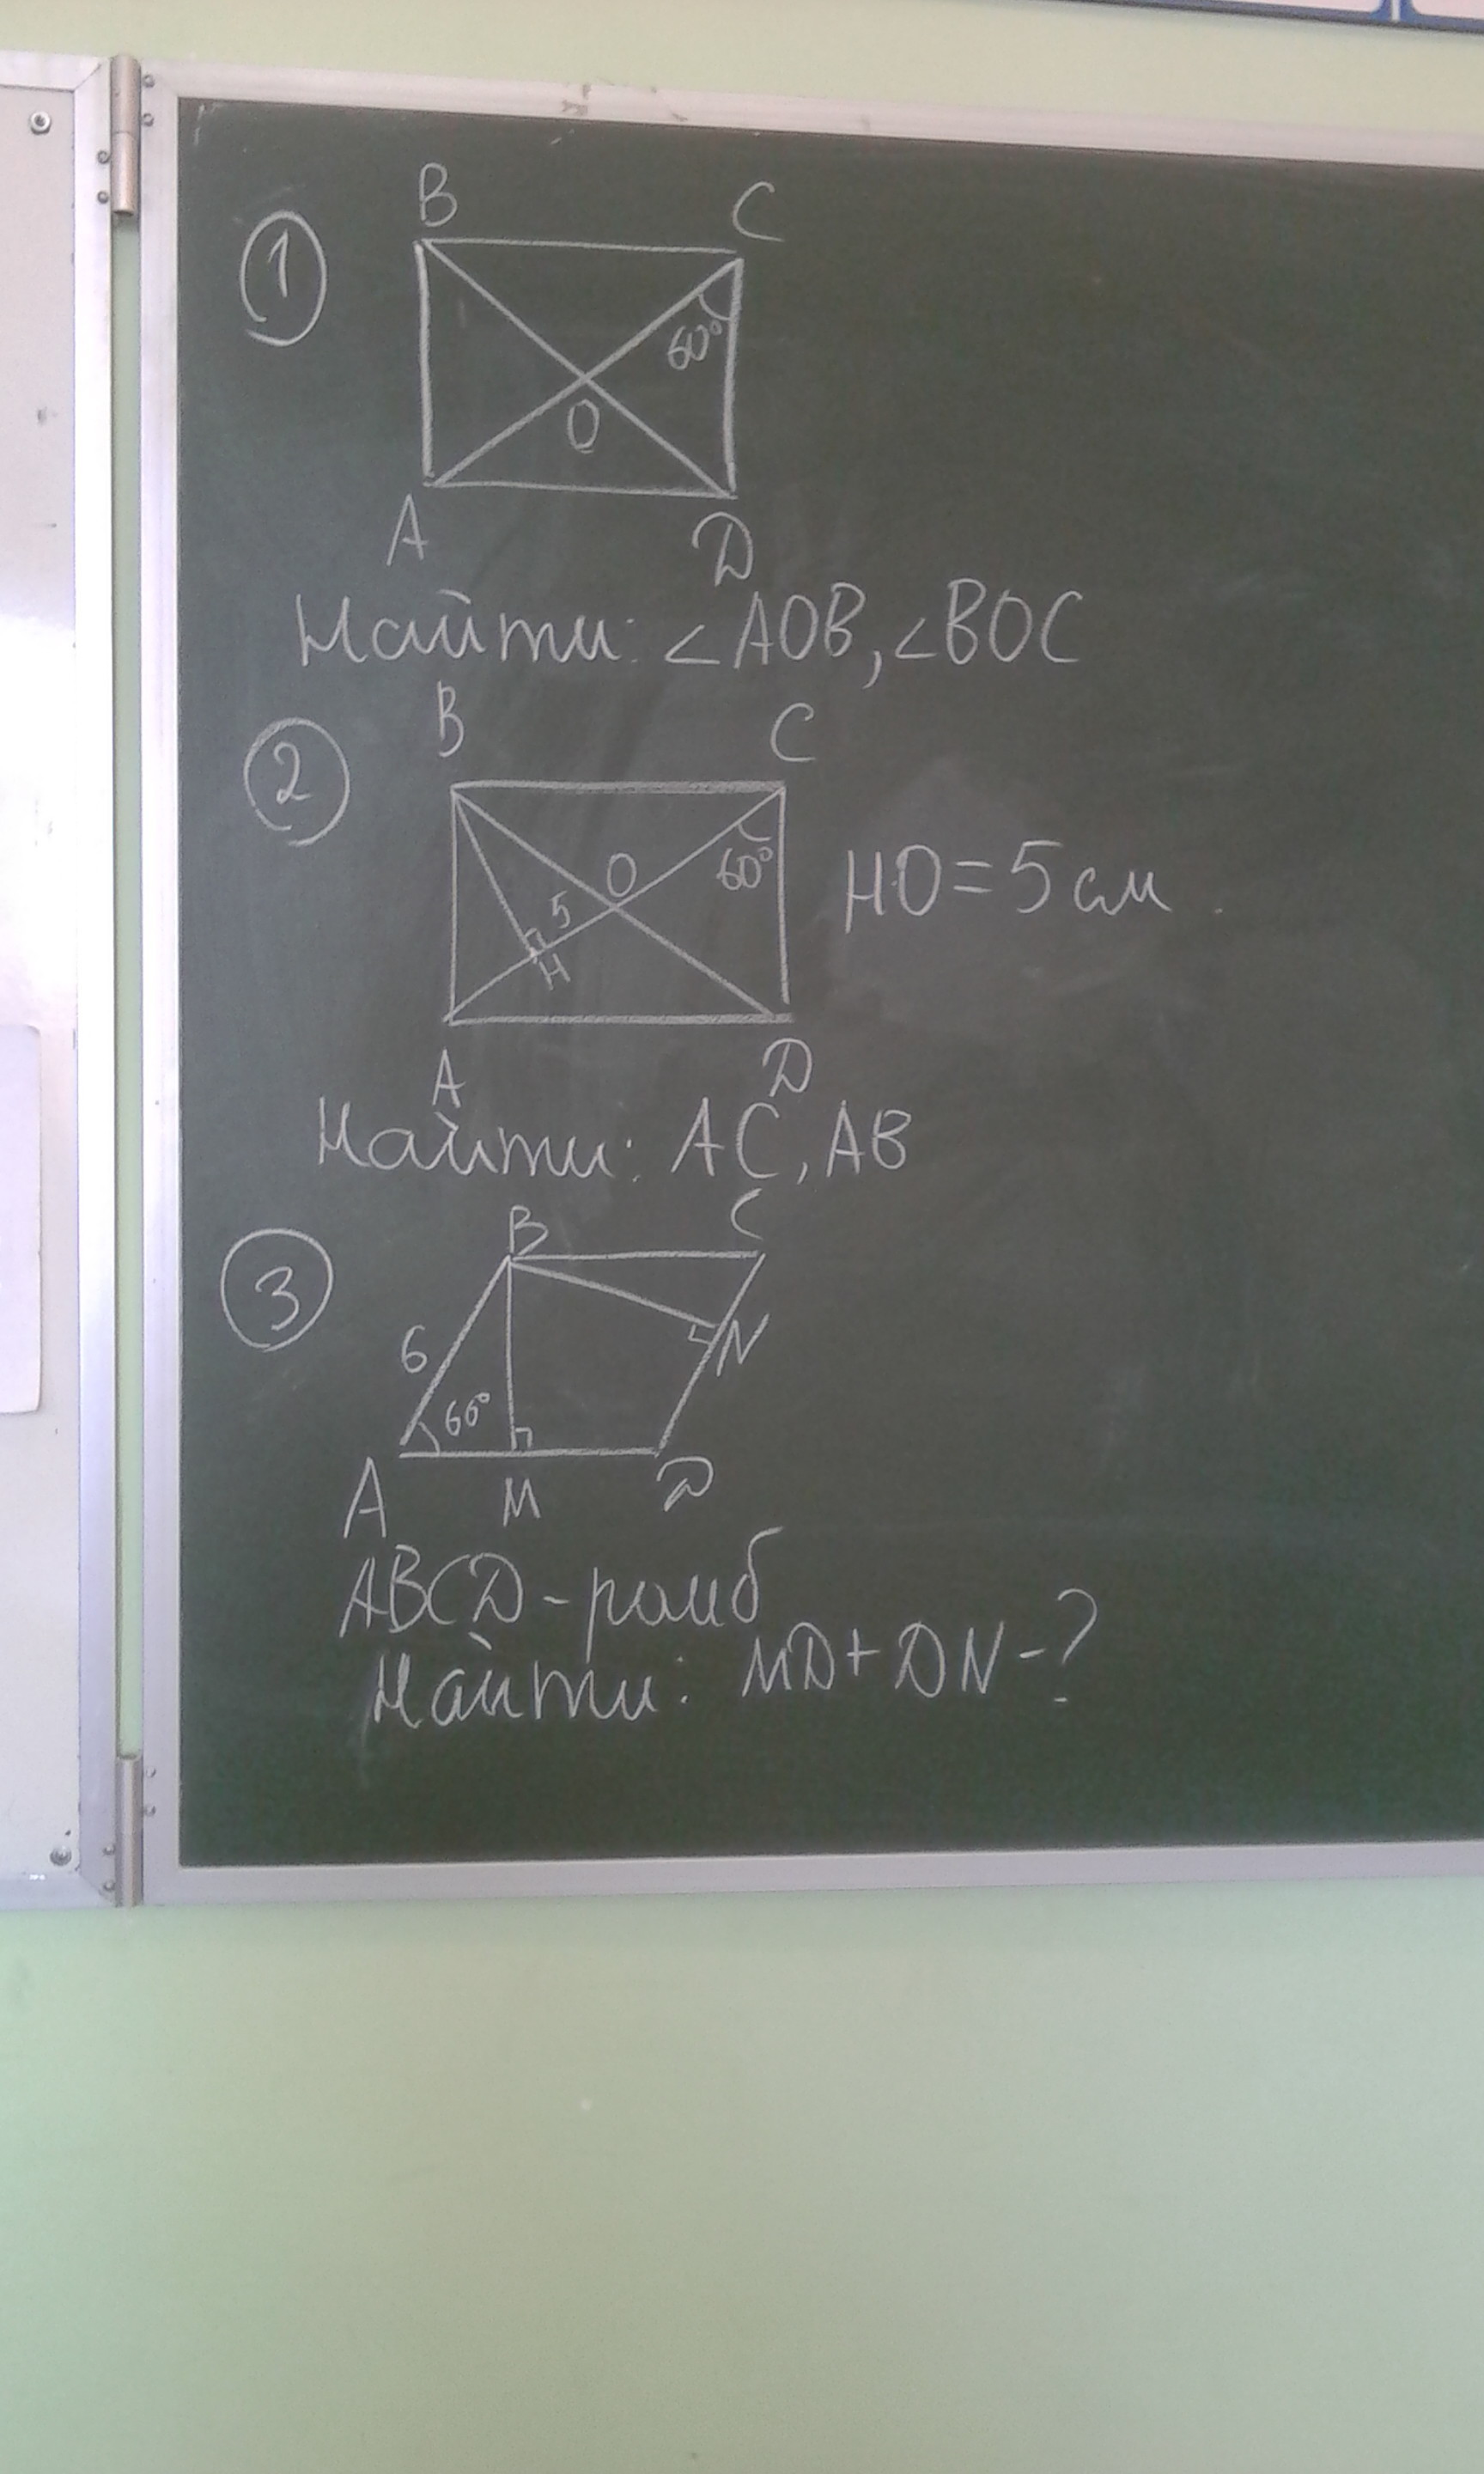 1
B C
60°
O
A D
Найти: ∠AOB, ∠BOC
2
B C
O
60°
5
H
HO = 5 см
A D
Найти: AC, AB
3
B C
6
N
60°
A M D
ABCD - ромб
Найти: MD + DN - ?